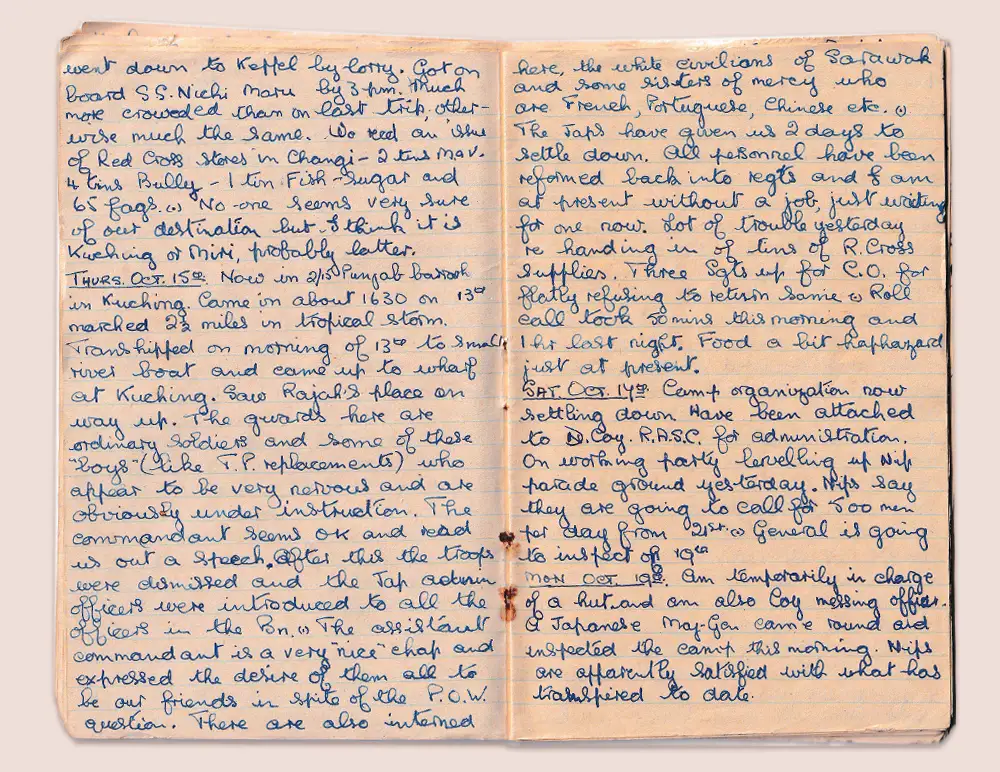 went down to Keppel by lorry. Got on
board S.S. Nichi Maru by 3 p.m. Much
more crowded than on last trip, other-
wise much the same. We recd an issue
of Red Cross stores in Changi - 2 tins M&V.
4 tins Bully - 1 tin Fish - Sugar and
65 fags. No-one seems very sure
of our destination but I think it is
Kuching or Miri, probably latter.
THURS. OCT. 15th. Now in 2/15th Punjab barrack
in Kuching. Came in about 1630 on 13th
marched 2½ miles in tropical storm.
Transhipped on morning of 13th to small
river boat and came up to wharf
at Kuching. Saw Rajah's place on
way up. The guards here are
ordinary soldiers and some of these
"boys" (like T.P. replacements) who
appear to be very nervous and are
obviously under instruction. The
commandant seems OK and read
us out a speech. After this the troops
were dismissed and the Jap admin
officers were introduced to all the
officers in the Bn. The assistant
commandant is a very "nice" chap and
expressed the desire of them all to
be our friends in spite of the P.O.W.
question. There are also interned
here, the white civilians of Sarawak
and some sisters of mercy who
are French, Portuguese, Chinese etc.
The Japs have given us 2 days to
settle down. All personnel have been
reformed back into regts and I am
at present without a job, just waiting
for one now. Lot of trouble yesterday
re handing in of tins of R. Cross
supplies. Three Sgts up for C.O. for
flatly refusing to return same. Roll
call took 50 mins this morning and
1 hr last night. Food a bit haphazard
just at present.
SAT. OCT. 17th. Camp organization now
settling down. Have been attached
to D. Coy. R.A.S.C. for administration.
On working party levelling up Nip
parade ground yesterday. Nips say
they are going to call for 500 men
per day from 21st. General is going
to inspect on 19th
MON OCT 19th. Am temporarily in charge
of a hut and am also Coy messing officer.
A Japanese Maj-Gen came round and
inspected the camp this morning. Nips
are apparently satisfied with what has
transpired to date.